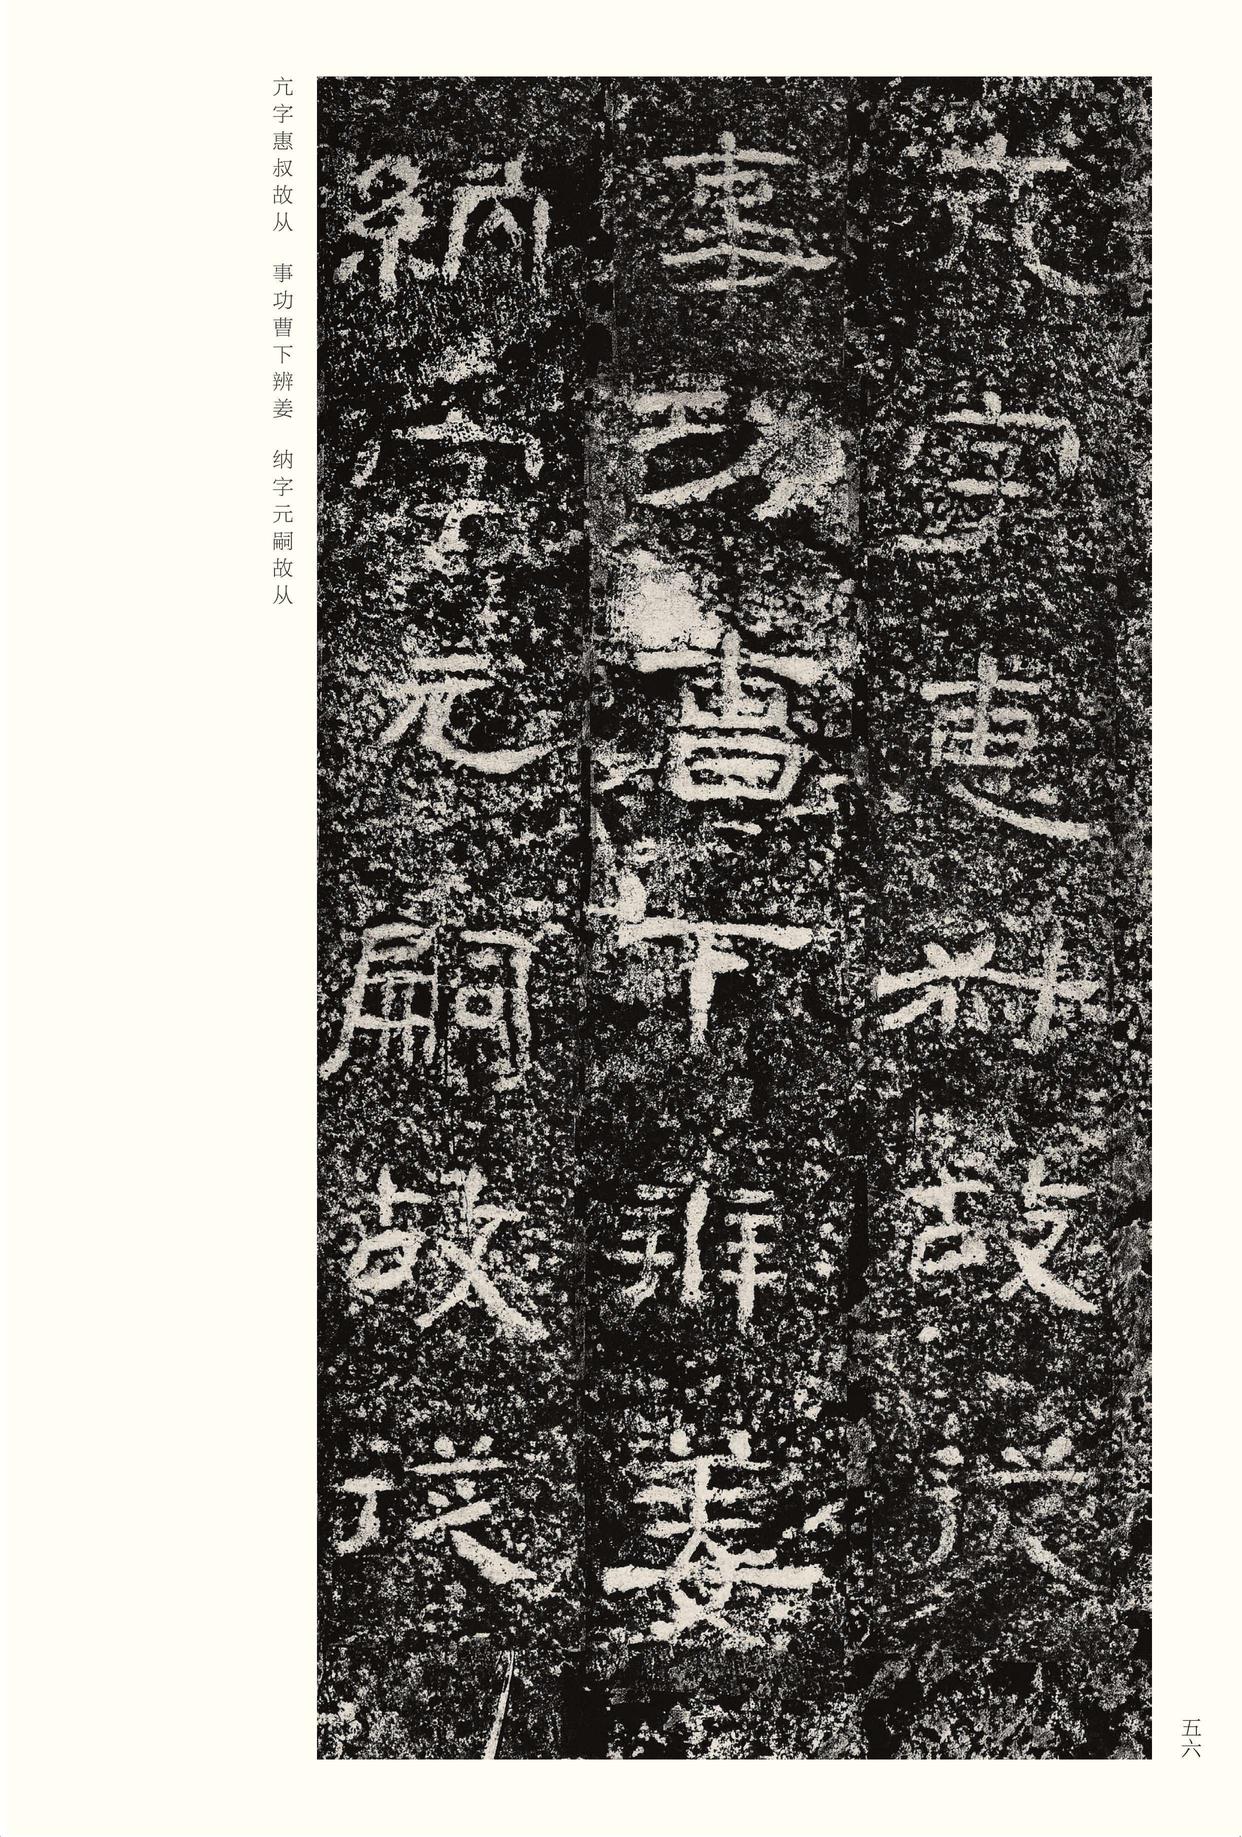 亢字惠叔故从
事功曹下辨姜
納字元嗣故从
亢字惠叔故从　事功曹下辨姜　纳字元嗣故从
五六